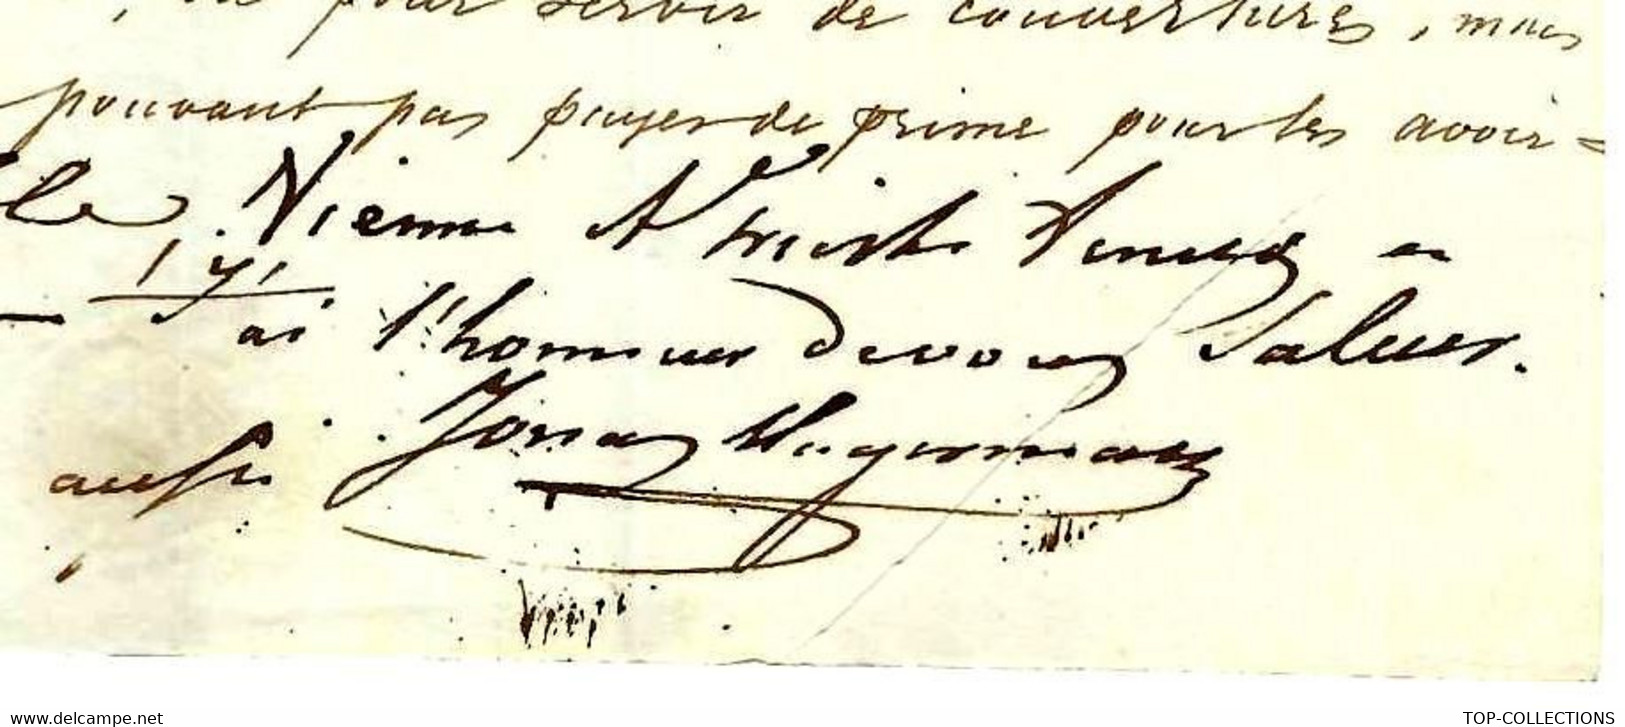 pour servir de couvertures, mais
pouvant pas payer de prime pour les avoir =
Vienne & Trieste Venise
j'ai l'honneur de vous saluer.
aussi Jonas Hagerman
www.delcampe.net TOP-COLLECTIONS